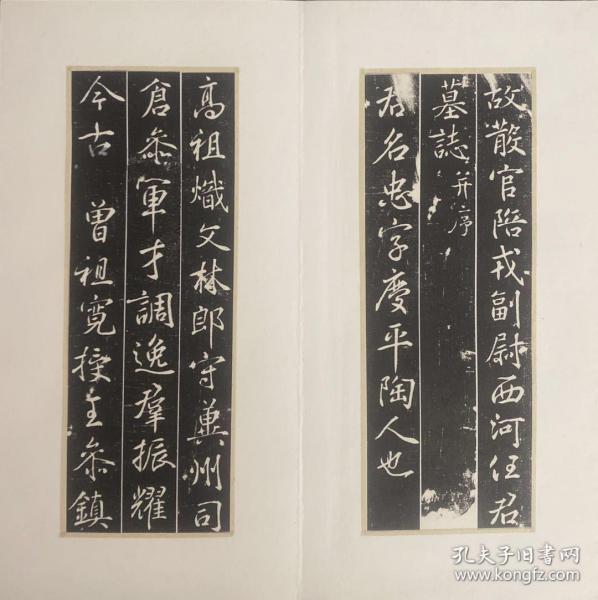 故散官陪戎副尉西河任君
墓誌并序
君名忠字慶平陶人也
高祖熾文林郎守冀州司
倉參軍才調逸羣振耀
今古 曾祖寬授主參鎮
孔夫子旧书网
www.kongfz.com